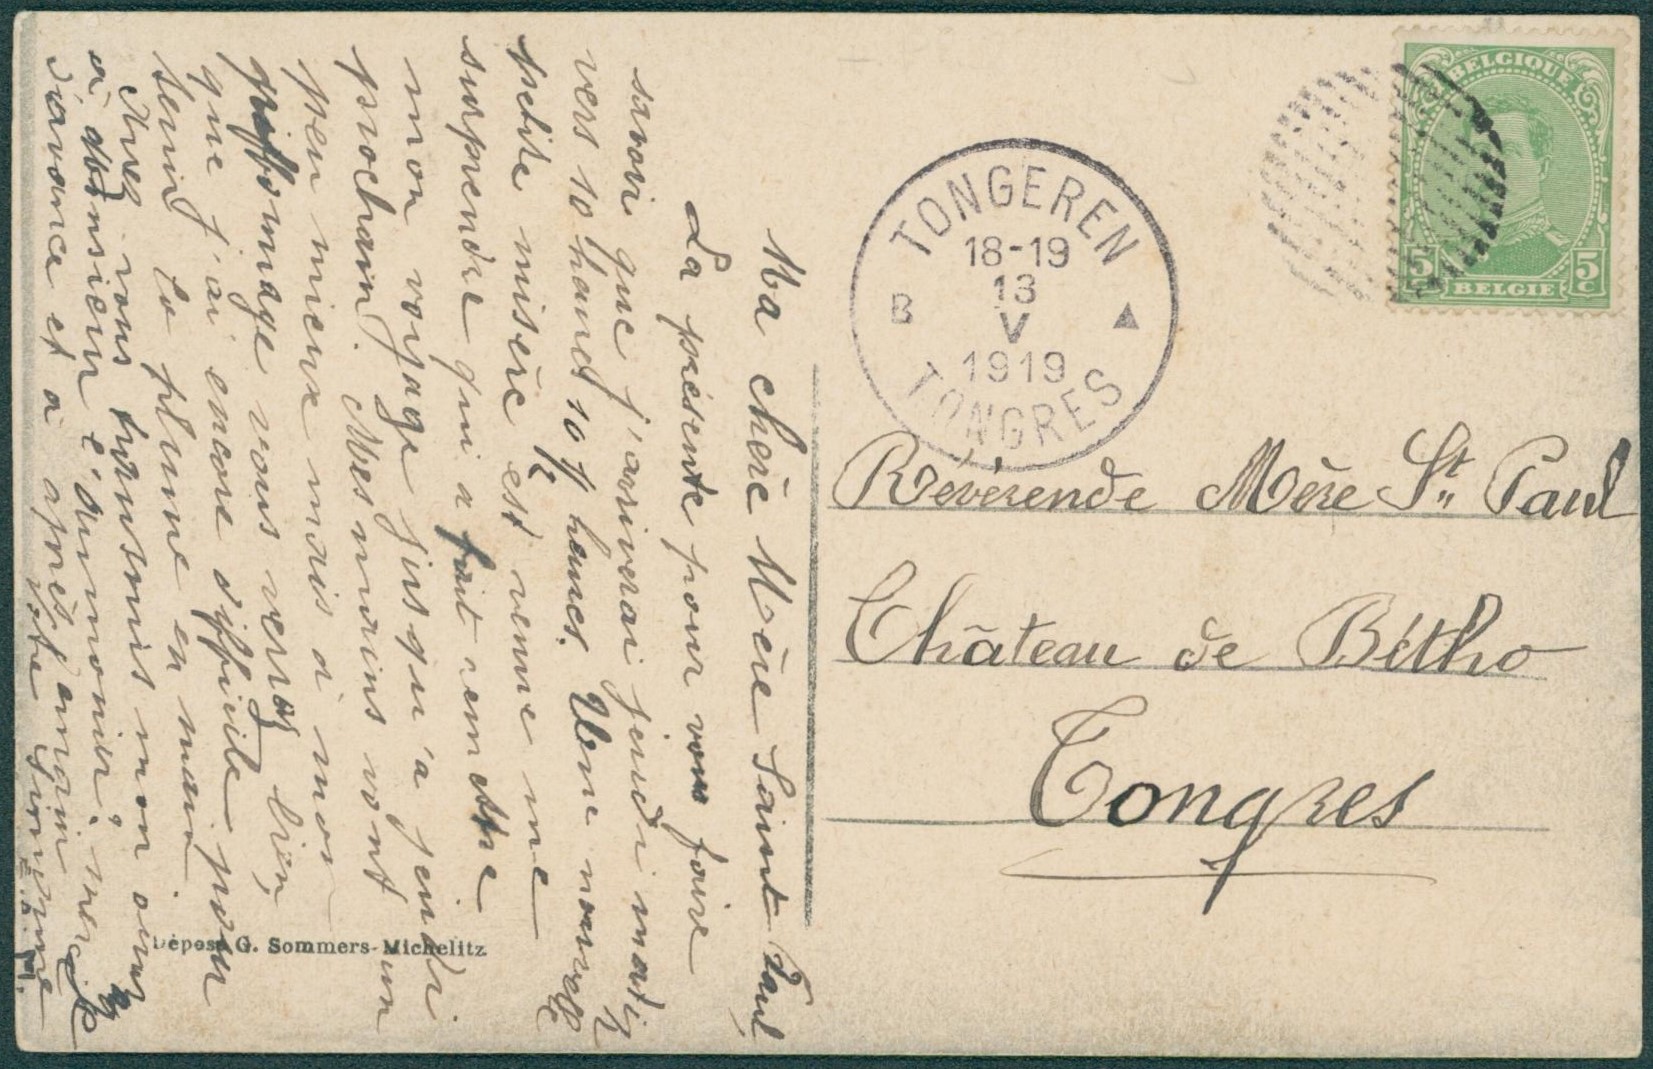 Ma chère Mère Saint Paul,
La présente pour vous faire
savoir que j'arriverai jeudi matin
vers 10 heures 10½ heures. Une nouvelle
petite misère est venue me
surprendre qui a fait remettre
mon voyage jusqu'à jeudi
prochain. Mes mains vont un
peu mieux mais à mon
griffonnage vous verrez bien
que j'ai encore difficile pour
tenir la plume en main
Avez vous transmis mon
à monsieur l'aumonier; merci
d'avance et à après
Votre
BELGIQUE
5 5
c c
BELGIE
TONGEREN
18-19
13
V
1919
B
TONGRES
Révérende Mère St. Paul
Château de Bétho
Tongres
Dépose G. Sommers-Michelitz